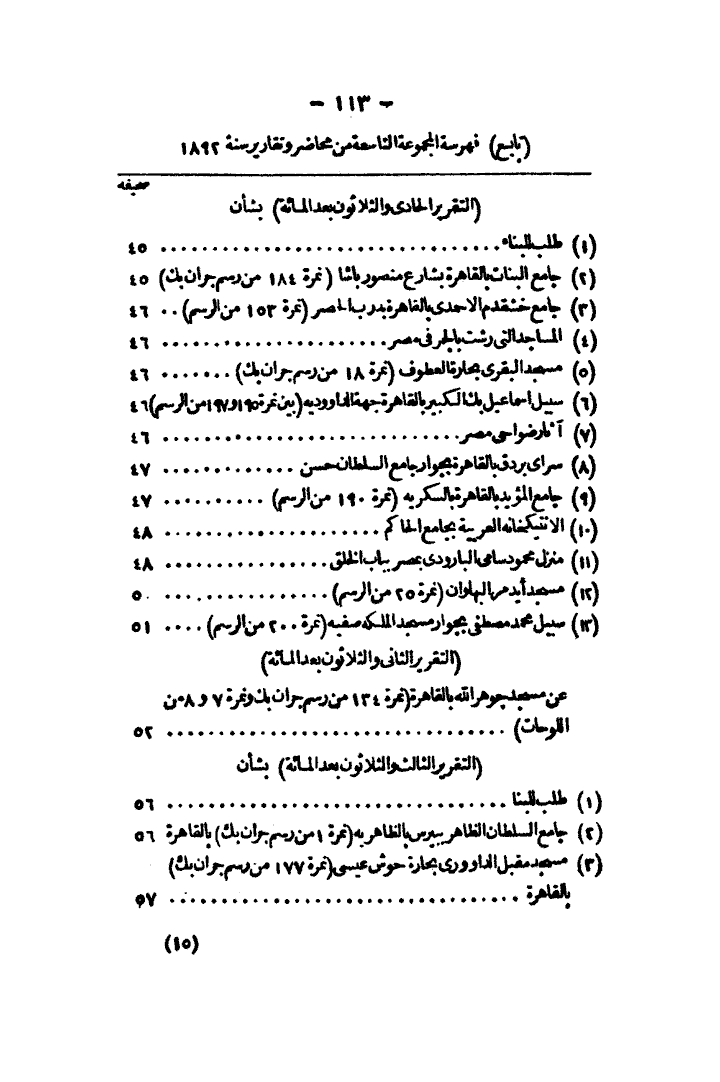 - ١١٣ -
(تابع) فهرسة المجموعة التاسعة من محاضر وتقارير سنة ١٨٩٢
صحيفه
(التقرير الحادى والثلاثون بعد المائة) بشأن
(١) طلب للبناء ........ ٤٥
(٢) جامع البنات بالقاهرة بشارع منصور باشا (نمرة ١٨٤ من رسم جران بك) ٤٥
(٣) جامع خشقدم الاحمدى بالقاهرة بدرب الحصر (نمرة ١٥٣ من الرسم) .. ٤٦
(٤) المساجد التى رشت بالجر فى مصر ........ ٤٦
(٥) مسجد البقرى بحارة العطوف (نمرة ١٨ من رسم جران بك) ....... ٤٦
(٦) سبيل اسماعيل بك الكبير بالقاهرة جهة الداووديه (بين نمرة ١٩٥ و ١٩٧ من الرسم) ٤٦
(٧) آثار ضواحى مصر ........ ٤٦
(٨) سراى بردق بالقاهرة بجوار جامع السلطان حسن ........ ٤٧
(٩) جامع المؤيد بالقاهرة بالسكريه (نمرة ١٩٠ من الرسم) ........ ٤٧
(١٠) الانتيكخانه العربية بجامع الحاكم ........ ٤٨
(١١) منزل محمود سامى البارودى بمصر بباب الخلق ........ ٤٨
(١٢) مسجد أيدمر البهلوان (نمرة ٢٥ من الرسم) ........ ٥٠
(١٣) سبيل محمد مصطفى بجوار مسجد الملكه صفيه (نمرة ٢٠٠ من الرسم) .... ٥١
(التقرير الثانى والثلاثون بعد المائة)
عن مسجد جوهر الله بالقاهرة (نمرة ١٣٤ من رسم جران بك ونمرة ٧ و ٨ من
اللوحات) ........ ٥٢
(التقرير الثالث والثلاثون بعد المائة) بشأن
(١) طلب للبنا ........ ٥٦
(٢) جامع السلطان الظاهر بيبرس بالظاهريه (نمرة ١ من رسم جران بك) بالقاهرة ٥٦
(٣) مسجد مقبل الداوورى بحارة حوش عيسى (نمرة ١٧٧ من رسم جران بك)
بالقاهرة ........ ٥٧
(١٥)